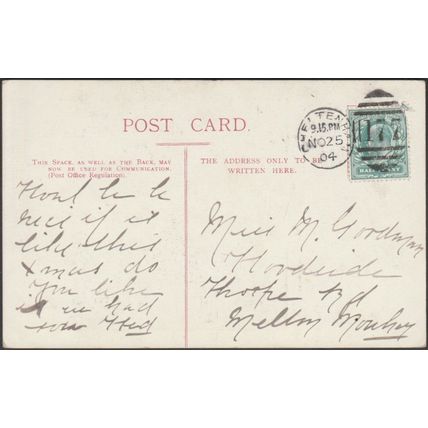 POST CARD.
THIS SPACE, AS WELL AS THE BACK, MAY
NOW BE USED FOR COMMUNICATION.
(Post Office Regulation).
THE ADDRESS ONLY TO BE
WRITTEN HERE.
CHELTENHAM
9.15.PM
NO 25
04
177
HALFPENNY
Wont be
nice if it
like this
Xmas do
you like
it we had
snow
Miss M. Goodman
Woodside
Thorpe Rd
Melton Mowbray